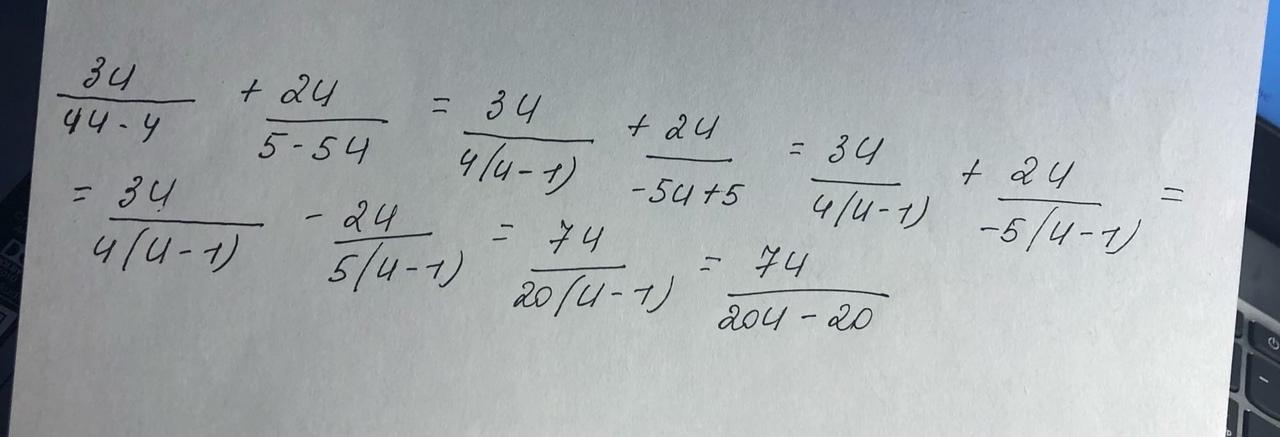 3u/(4u-4) + 2u/(5-5u) = 3u/(4(u-1)) + 2u/(-5u+5) = 3u/(4(u-1)) + 2u/(-5(u-1)) =
= 3u/(4(u-1)) - 2u/(5(u-1)) = 7u/(20(u-1)) = 7u/(20u-20)